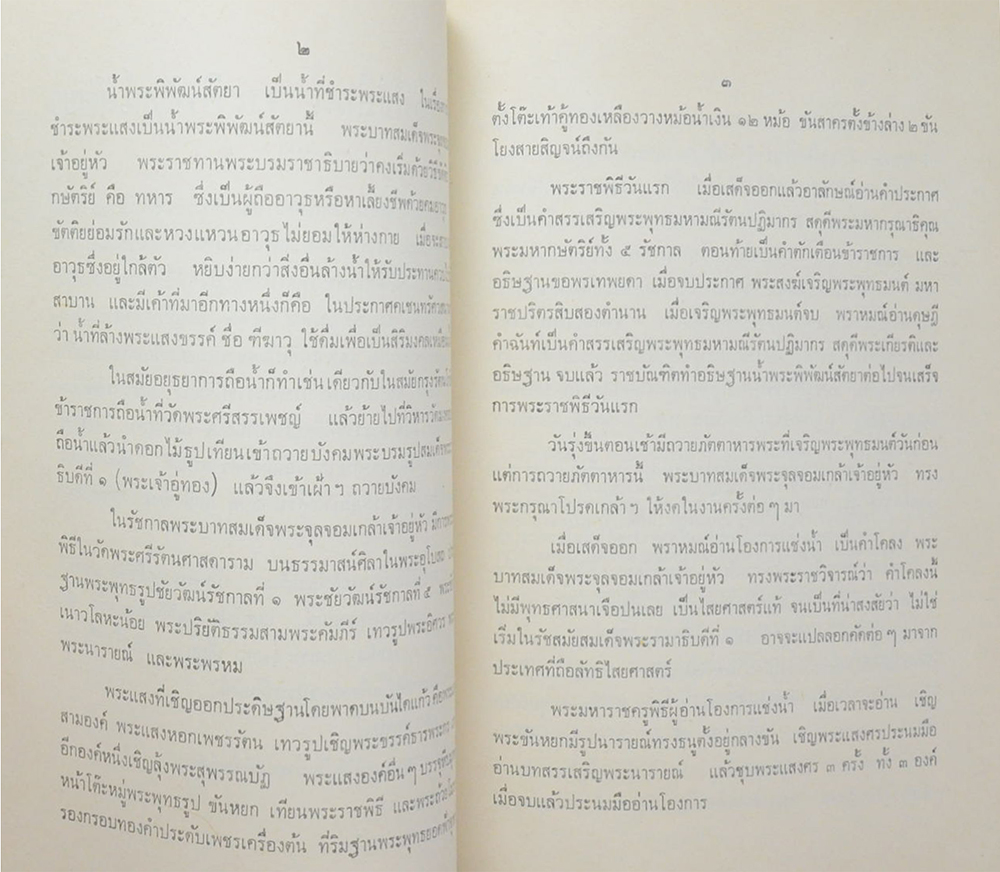 ๒
น้ำพระพิพัฒน์สัตยา เป็นน้ำที่ชำระพระแสง ในเรื่อง
ชำระพระแสงเป็นน้ำพระพิพัฒน์สัตยานี้ พระบาทสมเด็จพระ
เจ้าอยู่หัว พระราชทานพระบรมราชาธิบายว่าคงเริ่มด้วย
กษัตริย์ คือ ทหาร ซึ่งเป็นผู้ถืออาวุธหรือหาเลี้ยงชีพด้วยคม
ขัตติยย่อมรักและหวงแหนอาวุธไม่ยอมให้ห่างกาย เมื่อจะ
อาวุธซึ่งอยู่ใกล้ตัว หยิบง่ายกว่าสิ่งอื่นล้างน้ำให้รับประทาน
สาบาน และมีเค้าที่มาอีกทางหนึ่งก็คือ ในประกาศคเชนทรัศว
ว่า น้ำที่ล้างพระแสงขรรค์ ชื่อ ฑีฆาวุ ใช้ดื่มเพื่อเป็นสิริมงคล
ในสมัยอยุธยาการถือน้ำก็ทำเช่นเดียวกับในสมัยกรุงรัตน
ข้าราชการถือน้ำที่วัดพระศรีสรรเพชญ์ แล้วย้ายไปที่วิหาร
ถือน้ำแล้วนำดอกไม้ธูปเทียนเข้าถวายบังคมพระบรมรูปสมเด็จ
ธิบดีที่ ๑ (พระเจ้าอู่ทอง) แล้วจึงเข้าเฝ้าฯ ถวายบังคม
ในรัชกาลพระบาทสมเด็จพระจุลจอมเกล้าเจ้าอยู่หัว มีการ
พิธีในวัดพระศรีรัตนศาสดาราม บนธรรมาสน์ศิลาในพระอุโบสถ
ฐานพระพุทธรูปชัยวัฒน์รัชกาลที่ ๑ พระชัยวัฒน์รัชกาลที่ ๕
เนาวโลหะน้อย พระปริยัติธรรมสามพระคัมภีร์ เทวรูปพระอิศวร
พระนารายณ์ และพระพรหม
พระแสงที่เชิญออกประดิษฐานโดยพาดบนบันไดแก้ว คือ
สามองค์ พระแสงหอกเพชรรัตน เทวรูปเชิญพระขรรค์ธารพระกร
อีกองค์หนึ่งเชิญลุ้งพระสุพรรณบัฏ พระแสงองค์อื่นๆ บรรจุ
หน้าโต๊ะหมู่พระพุทธรูป ขันหยก เทียนพระราชพิธี และพระถ้วย
รองกรอบทองคำประดับเพชรเครื่องต้น ที่ริมฐานพระพุทธยอดฟ้า
๓
ตั้งโต๊ะเท้าคู้ทองเหลืองวางหม้อน้ำเงิน ๑๒ หม้อ ขันสาครตั้งข้างล่าง ๒ ขัน
โยงสายสิญจน์ถึงกัน
พระราชพิธีวันแรก เมื่อเสด็จออกแล้วอาลักษณ์อ่านคำประกาศ
ซึ่งเป็นคำสรรเสริญพระพุทธมหามณีรัตนปฏิมากร สดุดีพระมหากรุณาธิคุณ
พระมหากษัตริย์ทั้ง ๕ รัชกาล ตอนท้ายเป็นคำตักเตือนข้าราชการ และ
อธิษฐานขอพรเทพยดา เมื่อจบประกาศ พระสงฆ์เจริญพระพุทธมนต์ มหา
ราชปริตรสิบสองตำนาน เมื่อเจริญพระพุทธมนต์จบ พราหมณ์อ่านดุษฎี
คำฉันท์เป็นคำสรรเสริญพระพุทธมหามณีรัตนปฏิมากร สดุดีพระเกียรติและ
อธิษฐาน จบแล้ว ราชบัณฑิตทำอธิษฐานน้ำพระพิพัฒน์สัตยาต่อไปจนเสร็จ
การพระราชพิธีวันแรก
วันรุ่งขึ้นตอนเช้ามีถวายภัตตาหารพระที่เจริญพระพุทธมนต์วันก่อน
แต่การถวายภัตตาหารนี้ พระบาทสมเด็จพระจุลจอมเกล้าเจ้าอยู่หัว ทรง
พระกรุณาโปรดเกล้าฯ ให้งดในงานครั้งต่อๆ มา
เมื่อเสด็จออก พราหมณ์อ่านโองการแช่งน้ำ เป็นคำโคลง พระ
บาทสมเด็จพระจุลจอมเกล้าเจ้าอยู่หัว ทรงพระราชวิจารณ์ว่า คำโคลงนี้
ไม่มีพุทธศาสนาเจือปนเลย เป็นไสยศาสตร์แท้ จนเป็นที่น่าสงสัยว่า ไม่ใช่
เริ่มในรัชสมัยสมเด็จพระรามาธิบดีที่ ๑ อาจจะแปลลอกคัดต่อๆ มาจาก
ประเทศที่ถือลัทธิไสยศาสตร์
พระมหาราชครูพิธีผู้อ่านโองการแช่งน้ำ เมื่อเวลาจะอ่าน เชิญ
พระขันหยกมีรูปนารายณ์ทรงธนูตั้งอยู่กลางขัน เชิญพระแสงศรประนมมือ
อ่านบทสรรเสริญพระนารายณ์ แล้วชุบพระแสงศร ๓ ครั้ง ทั้ง ๓ องค์
เมื่อจบแล้วประนมมืออ่านโองการ